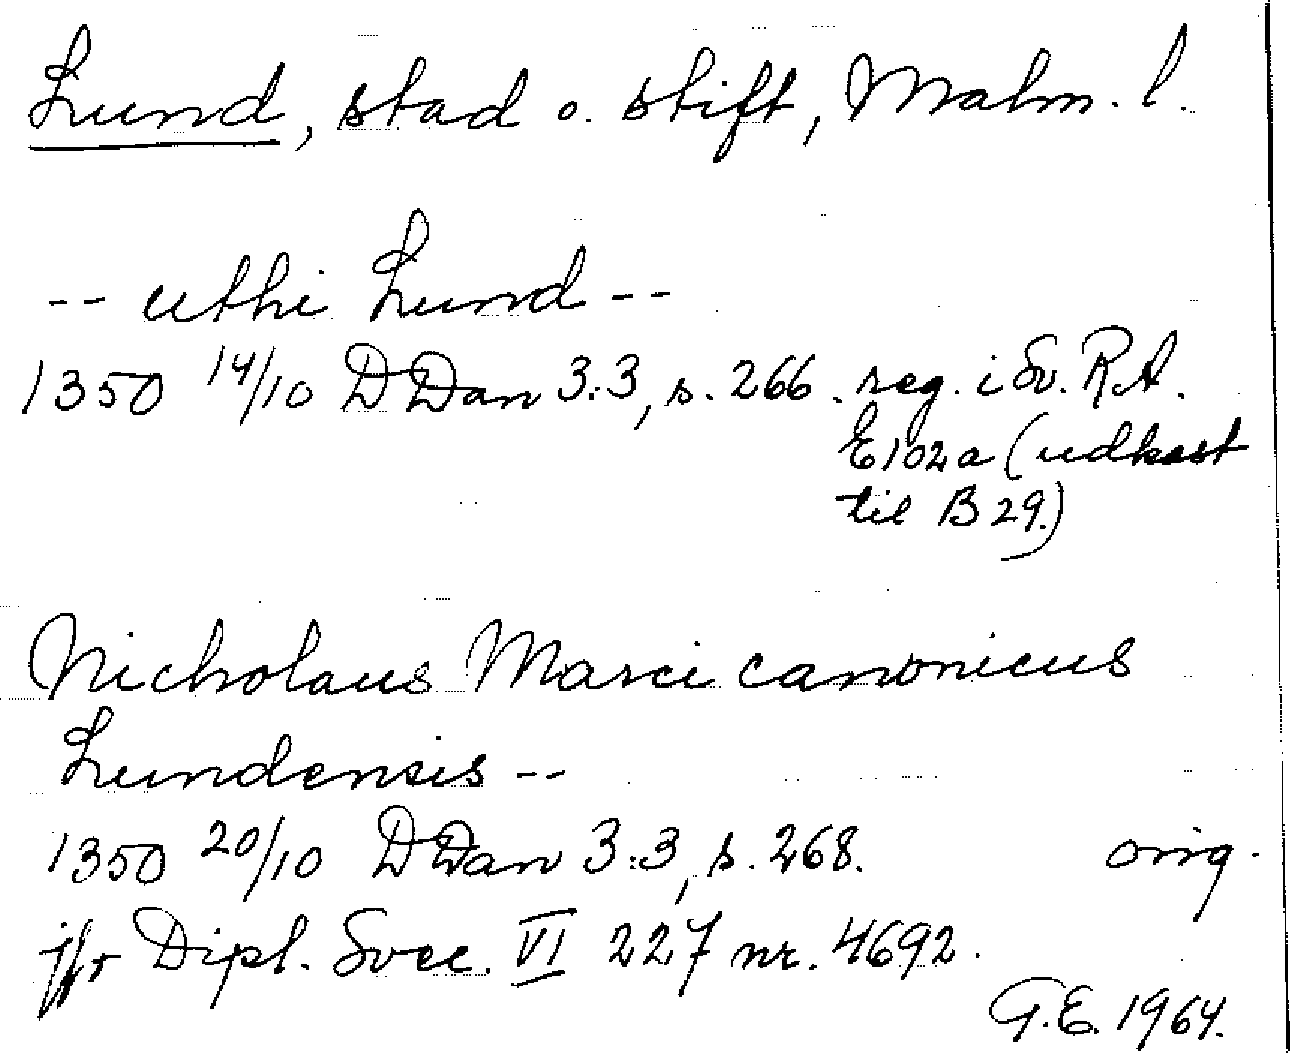 Lund, stad o. stift, Malm. l.
-- uthi Lund --
1350 14/10 DDan 3:3, s. 266. reg. i Sv. R.A.
E102a (udkast
til B 29.)
Nicholaus Marci canonicus
Lundensis --
1350 20/10 DDan 3:3, s. 268. orig.
jfr Dipl. Svec. VI 227 nr. 4692.
G.E. 1964.